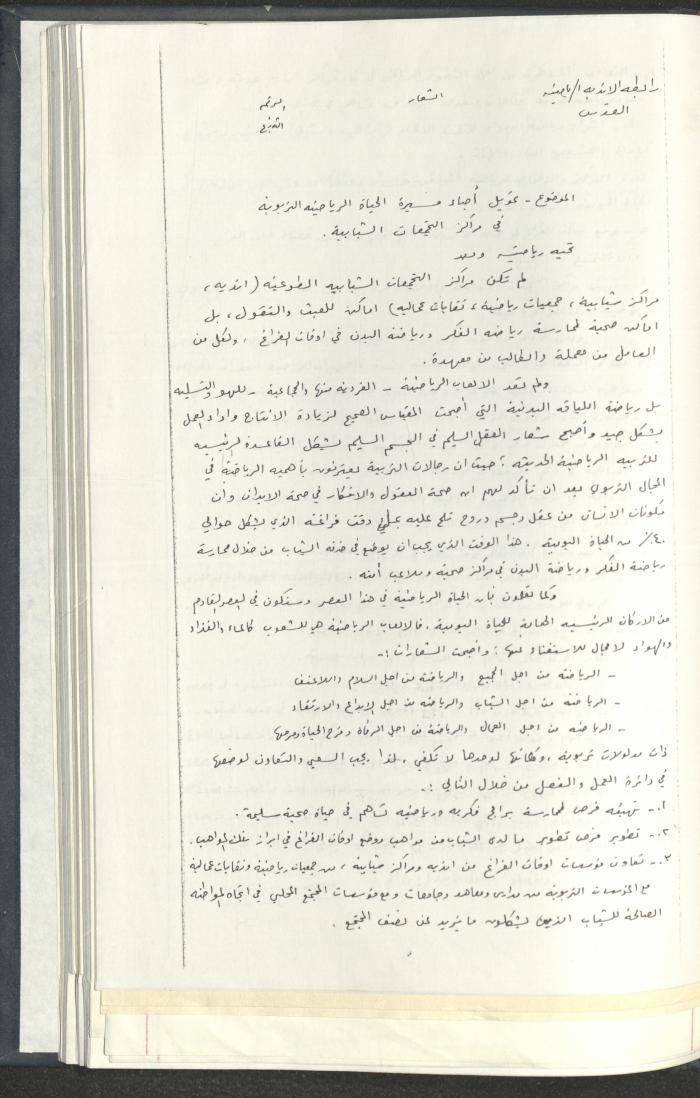 رابطة الاندية الرياضية الشعار الرقم
القدس التاريخ
الموضوع - تمويل أعباء مسيرة الحياة الرياضية التربوية
في مراكز التجمعات الشبابية .
تحية رياضية وبعد
لم تكن مراكز التجمعات الشبابية الطوعية ( اندية ،
مراكز شبابية ، جمعيات رياضية ، نقابات عمالية ) اماكن للعبث والتقول ، بل
اماكن صحية لممارسة رياضة الفكر ورياضة البدن في اوقات الفراغ ، ولكل من
العامل من عمله والطالب من معهده .
ولم تعد الالعاب الرياضية - الفردية منها والجماعية - للهو والتسلية
بل رياضة اللياقة البدنية التي أصبحت المقياس الصحيح لزيادة الانتاج واداء العمل
بشكل جيد وأصبح شعار العقل السليم في الجسم السليم يشكل القاعدة الرئيسية
للتربية الرياضية الحديثة ؛ حيث ان رجالات التربية يعترفون بأهمية الرياضة في
المجال التربوي بعد ان تأكد لهم ان صحة العقول والافكار في صحة الابدان وان
مكونات الانسان من عقل وجسم وروح تلح عليه وقت فراغه الذي يشكل حوالي
٤٠٪ من الحياة اليومية . هذا الوقت الذي يجب ان يوضع في خدمة الشباب من خلال ممارسة
رياضة الفكر ورياضة البدن في مراكز صحية وملاعب أمنه .
وكما تعلمون فان الحياة الرياضية في هذا العصر وستكون في العصر القادم
من الاركان الرئيسية الهامة للحياة اليومية . فالالعاب الرياضية هي للشعوب كالماء والغذاء
والهواء لا مجال للاستغناء عنها ؛ وأضحت الشعارات :-
- الرياضة من اجل الجميع والرياضة من اجل السلام واللاعنف
- الرياضة من اجل الشباب والرياضة من اجل الابداع والارتقاء
- الرياضة من اجل العمال والرياضة من اجل الرفاه وفرح الحياة ومرحها
ذات مدلولات تربوية ، ولكنها لوحدها لا تكفي ، لذا يجب السعي والتعاون لوضعها
في دائرة العمل والفعل من خلال التالي :-
١.- تهيئة فرص لممارسة برامج فكرية ورياضية تساهم في حياة صحية سليمة .
٢.- تطوير فرص تطوير ما لدى الشباب من مواهب ووضع اوقات الفراغ في ابراز تلك المواهب .
٣.- تعاون مؤسسات اوقات الفراغ من اندية ومراكز شبابية ، من جمعيات رياضية ونقابات عمالية
مع المؤسسات التربوية من مدارس ومعاهد وجامعات ومع مؤسسات المجتمع المحلي في اتجاه المواطنه
الصالحة للشباب الذين يشكلون ما يزيد عن نصف المجتمع .